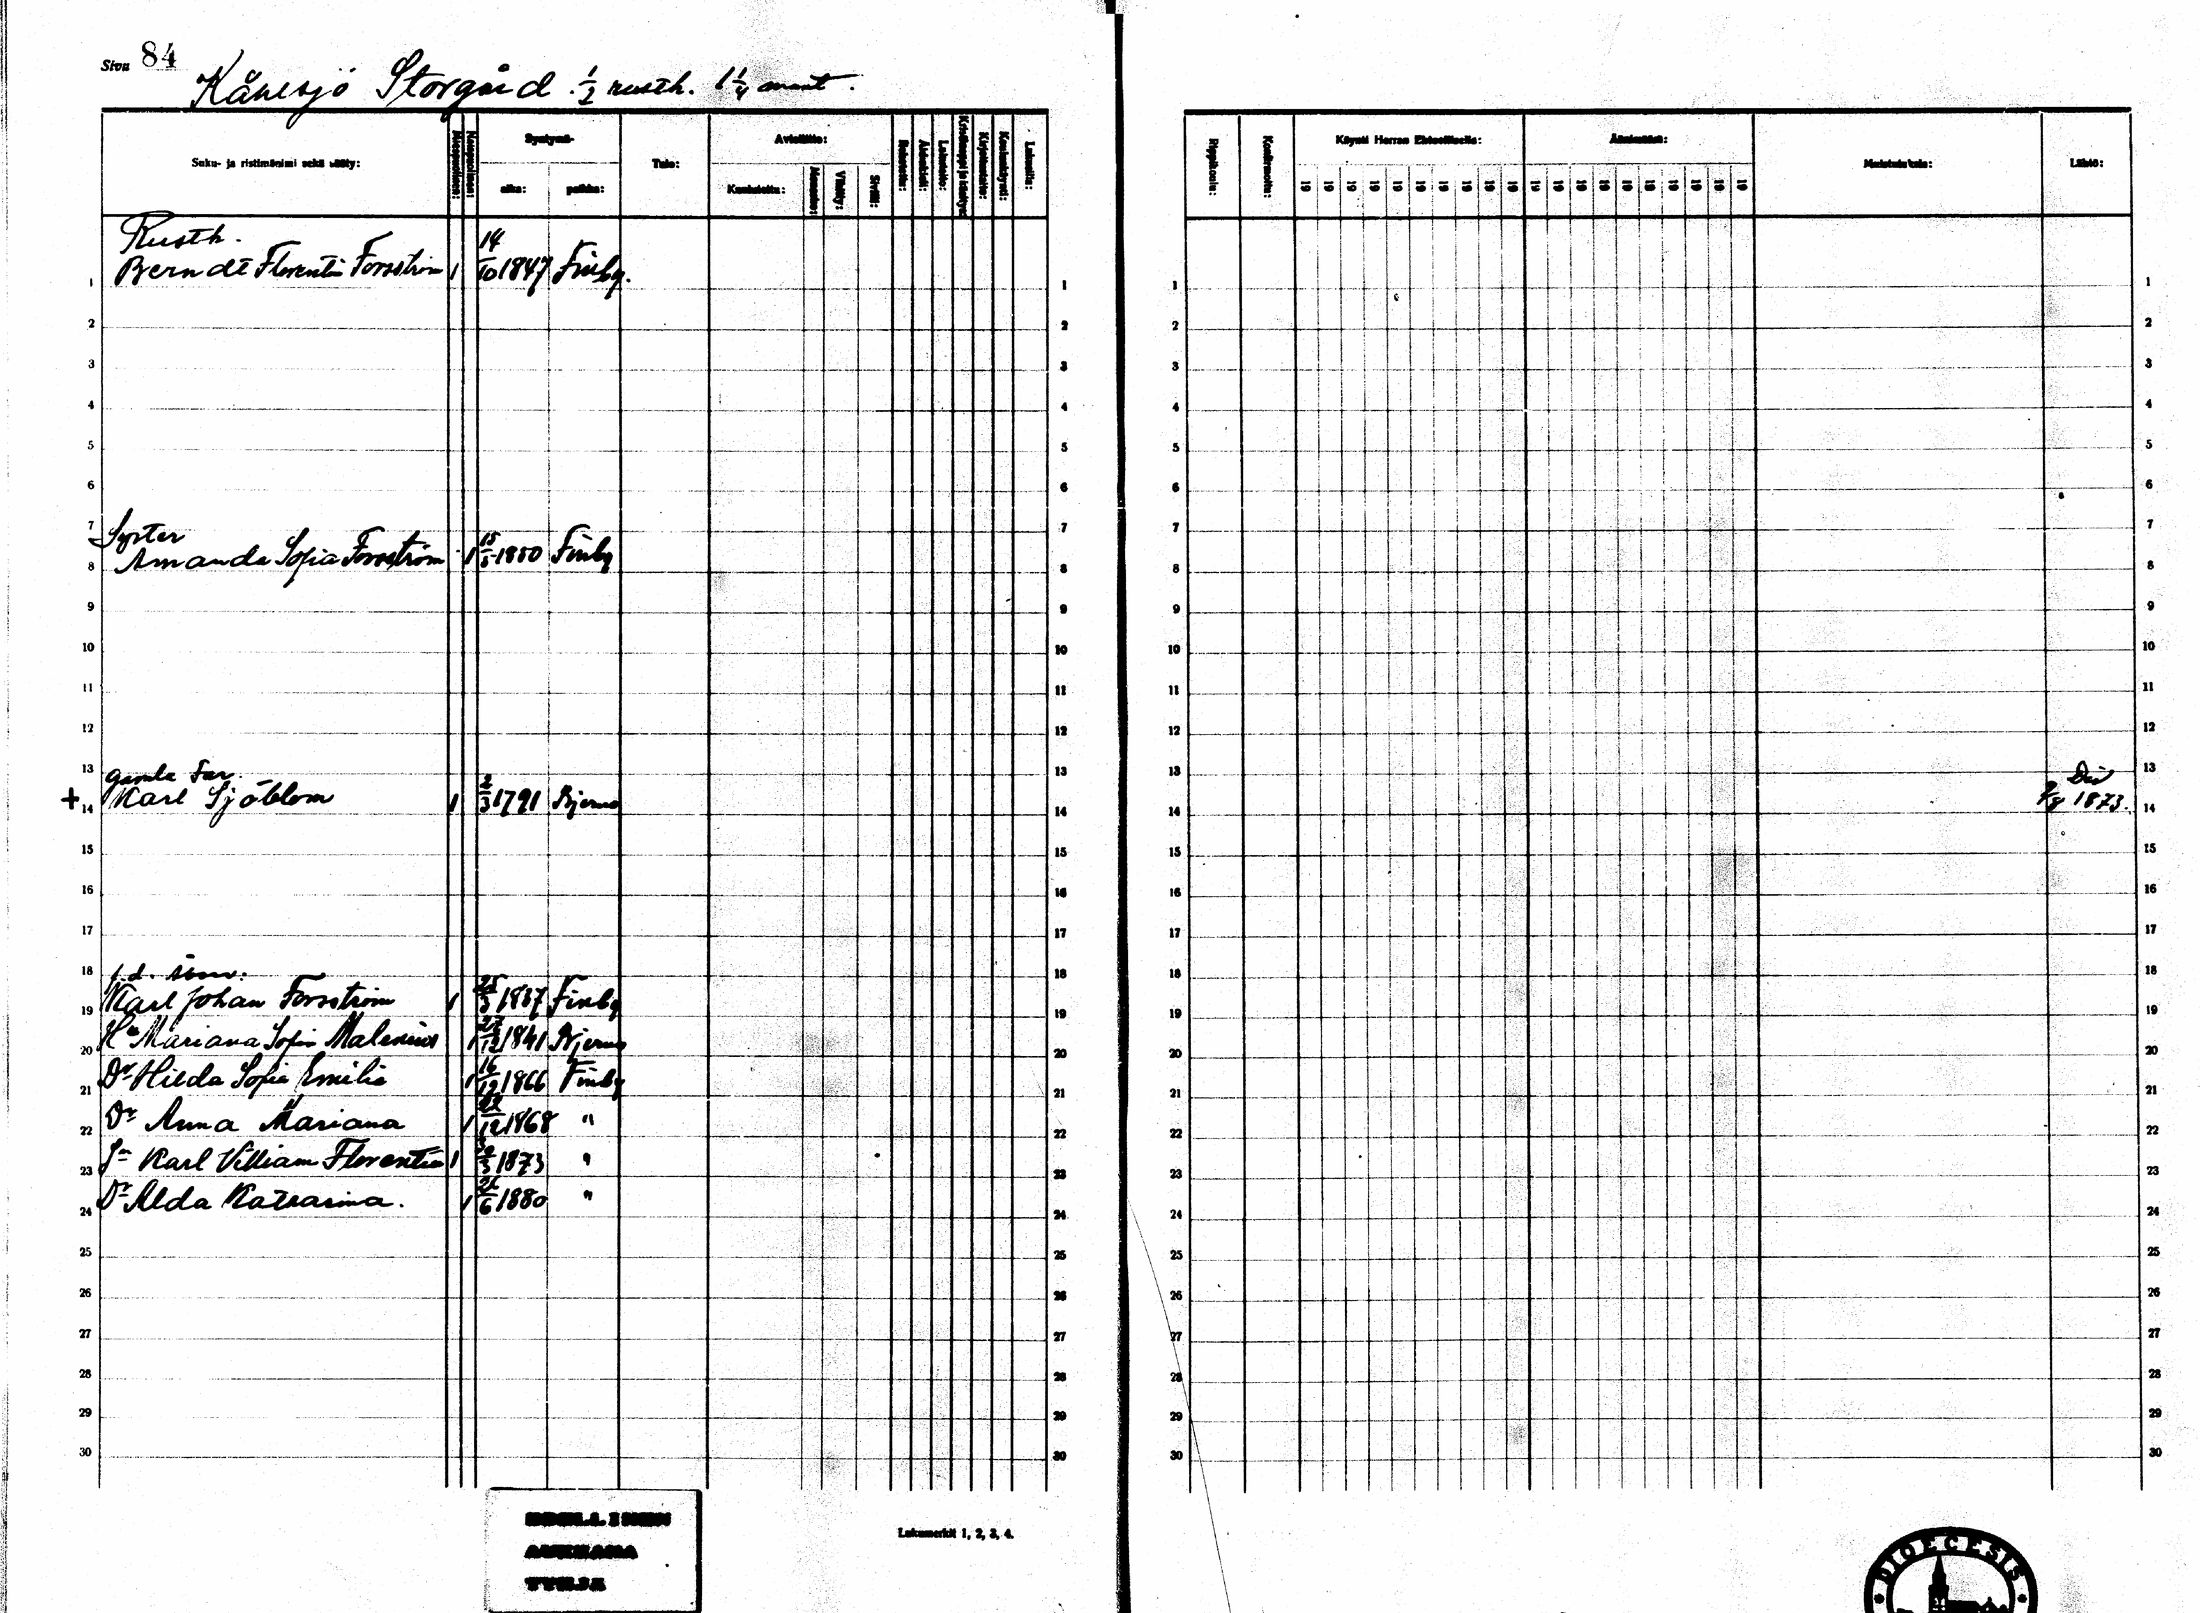 Sivu 84
Kånesjö Storgård. 1/2 rusth. 1 1/4 mant.
Suku- ja ristimänimi sekä sääty:
Miespuolinen:
Naispuolinen:
Syntymä-
aika:
paikka:
Tulo:
Avioliitto:
Kuulutettu:
Vihitty:
Siviili:
Rokotettu:
Lukutaito:
Kirjoitustaito:
Lukusilla:
Rippikoulu:
Konfirmoitu:
Käynti Herran Ehtoollisella:
19 19 19 19 19 19 19 19 19 19
19 19 19 19 19 19 19 19 19 19
Muistutuksia:
Lähtö:
Rusth.
1 Berndt Florentin Forsström 1 14/10 1847 Finby. 1
2 2
3 3
4 4
5 5
6 6
7 Syster 7
8 Amanda Sofia Forsström 1 15/5 1850 Finby 8
9 9
10 10
11 11
12 12
13 gamla Far. 13 Död
+ 14 Karl Sjöblom 1 2/3 1791 Bjerno 14 1873.
15 15
16 16
17 17
18 f.d. 18
19 Karl Johan Forsström 1 1837 Finby 19
20 Hu Mariana Sofia Malenius 1 27/12 1841 Bjerno 20
21 Dr Hilda Sofia Emilia 1 16/12 1866 Finby 21
22 Dr Anna Mariana 1 22/12 1868 " 22
23 Sn Karl Villiam Florentin 1 1873 " 23
24 Dr Alda Katarina. 1 26/6 1880 " 24
25 25
26 26
27 27
28 28
29 29
30 30
Lukumerkit 1, 2, 3, 4.
DIOECESIS